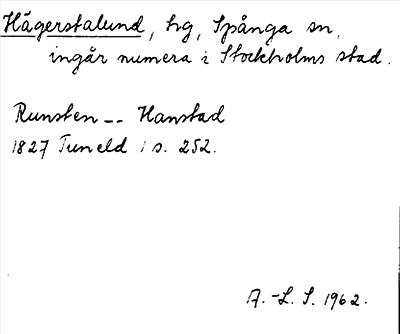 Hägerstalund, hg, Spånga sn,
ingår numera i Stockholms stad.
Runsten -- Hanstad
1827 Tuneld i s. 252.
A.-L. S. 1962.